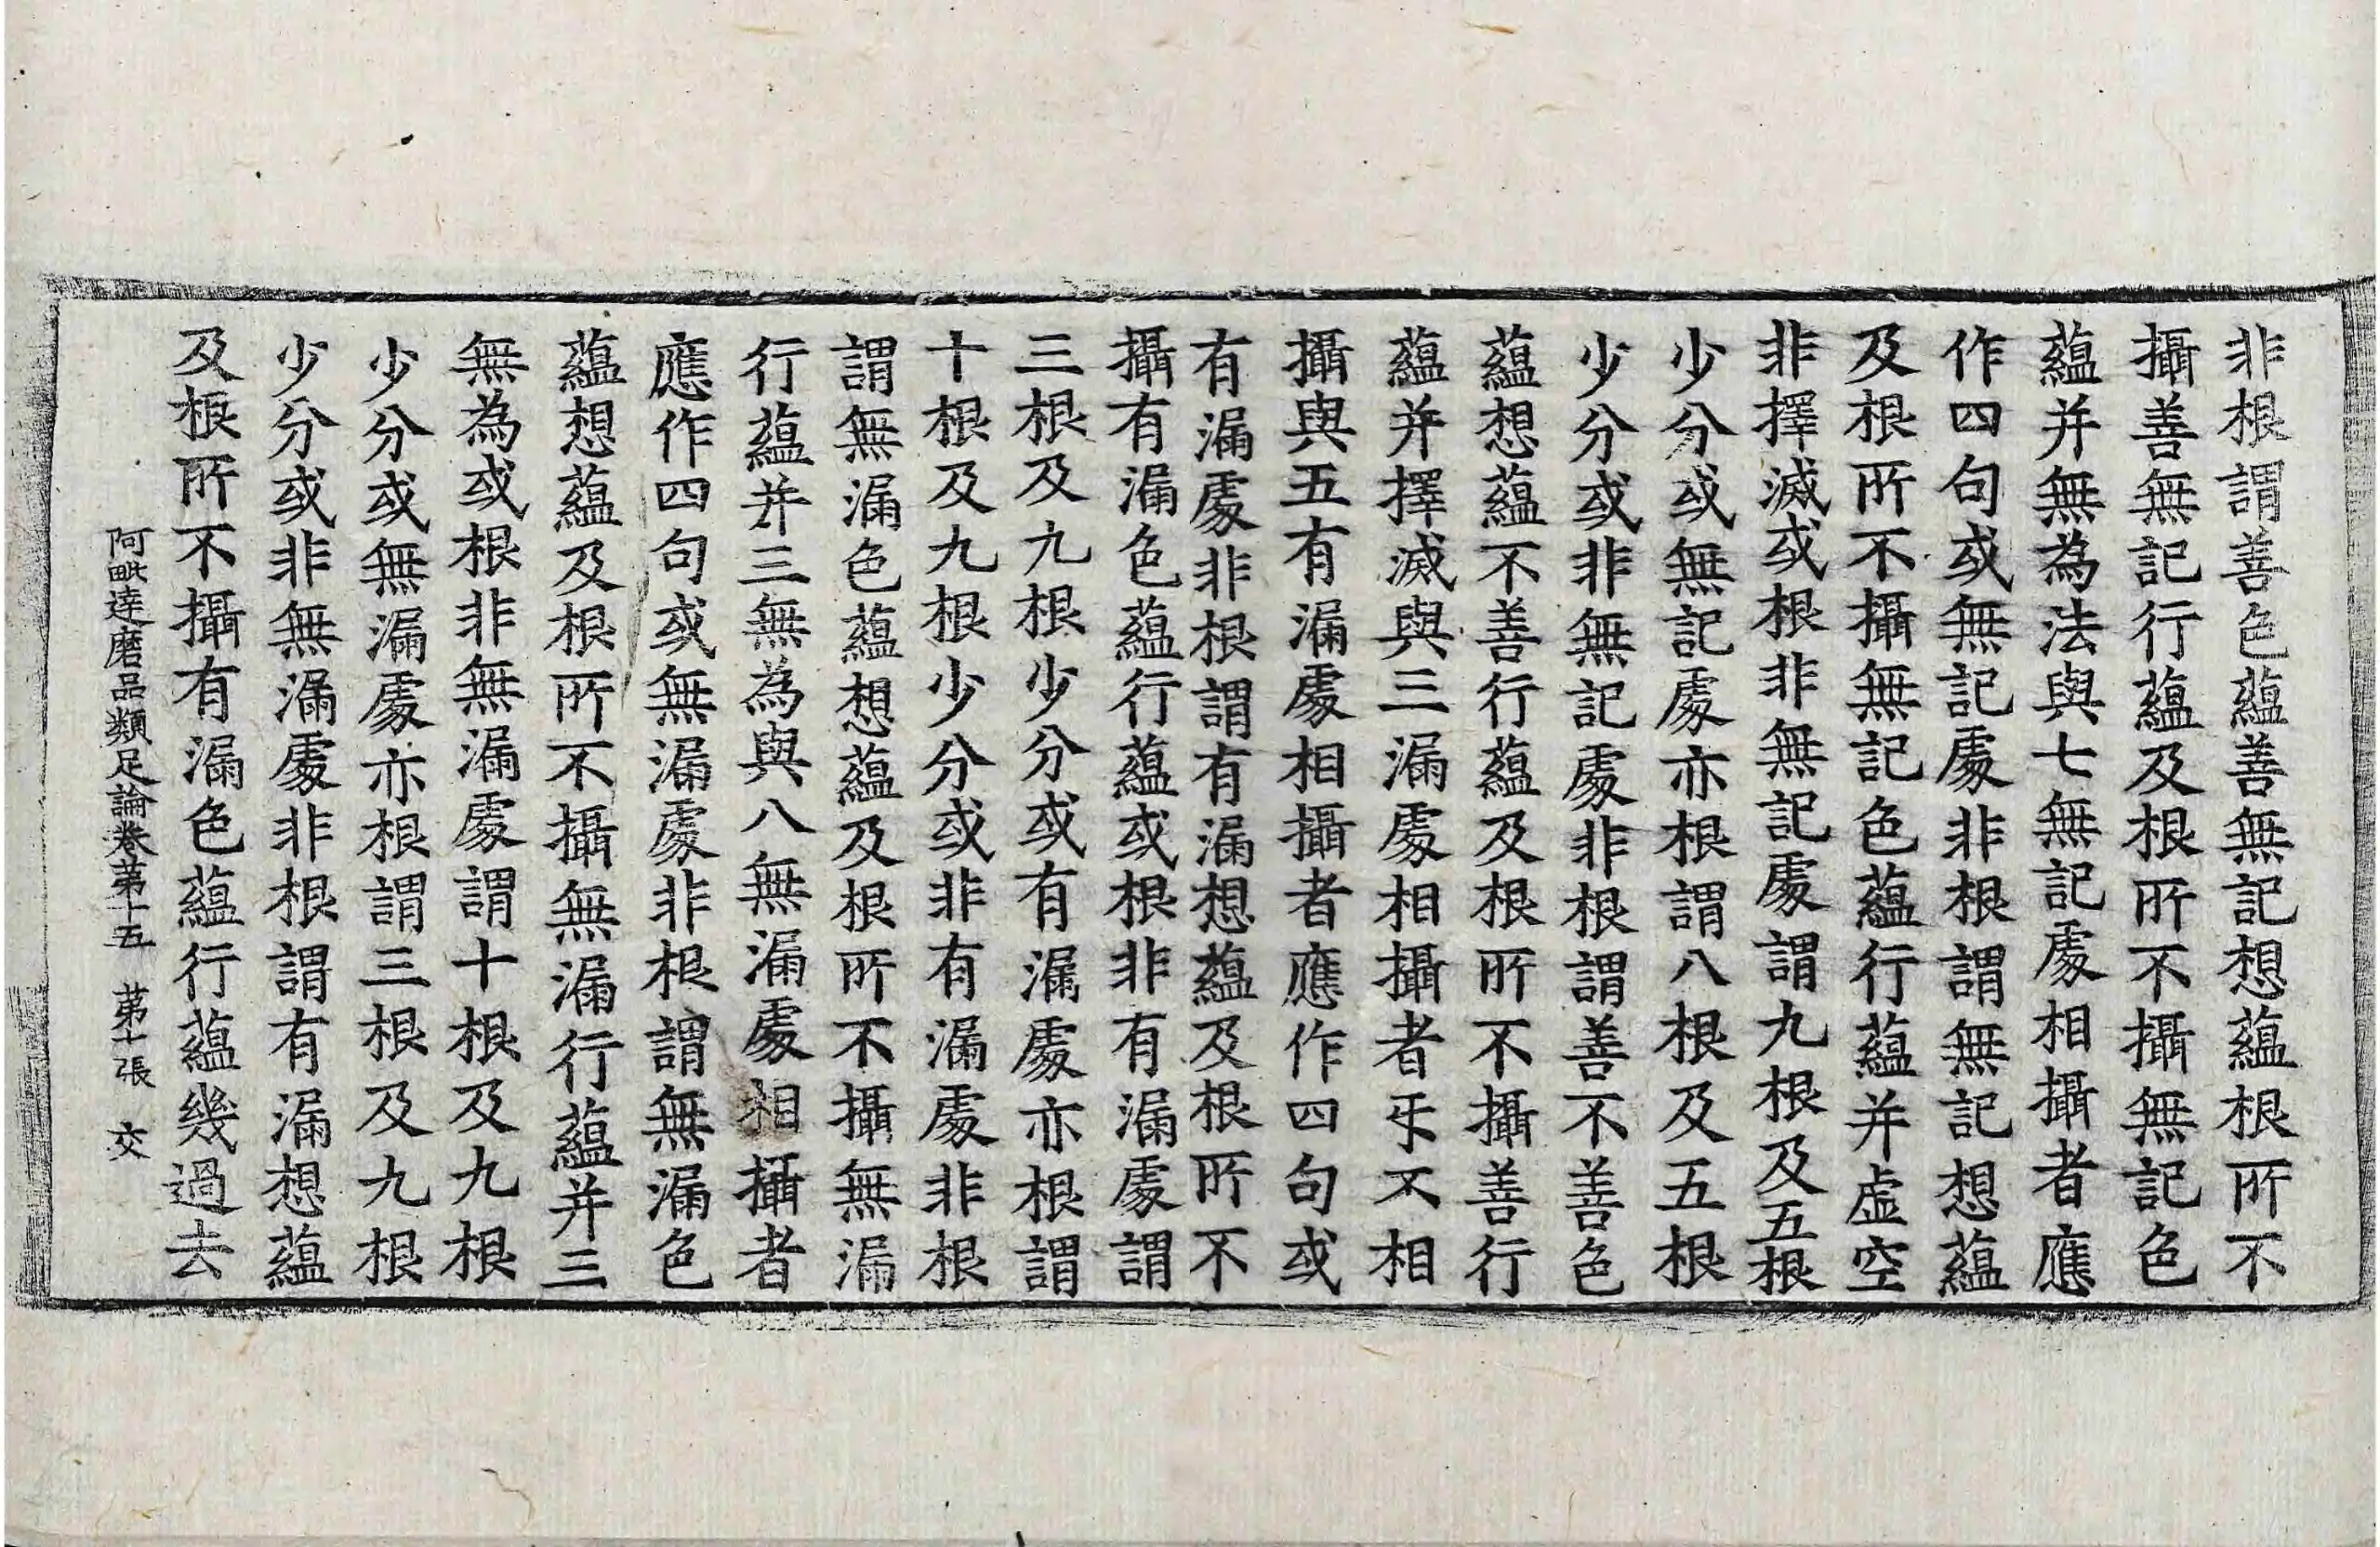 非根謂善色蘊善無記想蘊根所不
攝善無記行蘊及根所不攝無記色
蘊并無為法與七無記處相攝者應
作四句或無記處非根謂無記想蘊
及根所不攝無記色蘊行蘊并虛空
非擇滅或根非無記處謂九根及五根
少分或無記處亦根謂八根及五根
少分或非無記處非根謂善不善色
蘊想蘊不善行蘊及根所不攝善行
蘊并擇滅與三漏處相攝者乐不相
攝與五有漏處相攝者應作四句或
有漏處非根謂有漏想蘊及根所不
攝有漏色蘊行蘊或根非有漏處謂
三根及九根少分或有漏處亦根謂
十根及九根少分或非有漏處非根
謂無漏色蘊想蘊及根所不攝無漏
行蘊并三無為與八無漏處相攝者
應作四句或無漏處非根謂無漏色
蘊想蘊及根所不攝無漏行蘊并三
無為或根非無漏處謂十根及九根
少分或無漏處亦根謂三根及九根
少分或非無漏處非根謂有漏想蘊
及根所不攝有漏色蘊行蘊幾過去
阿毗達磨品類足論卷第十五 第十張 交